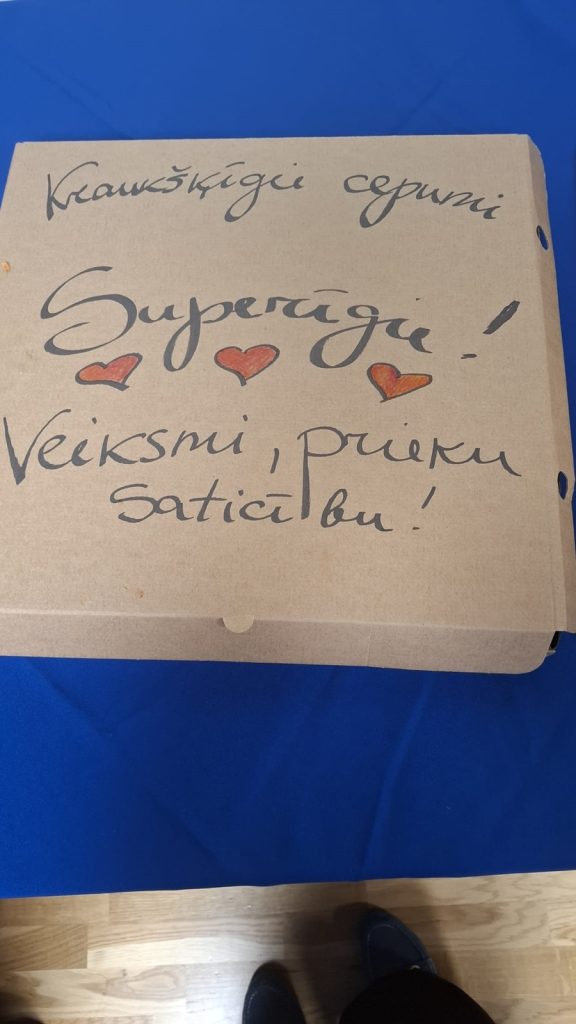 Kraukšķīgie cepumi
Superīgie!
Veiksmi, prieku
saticību!